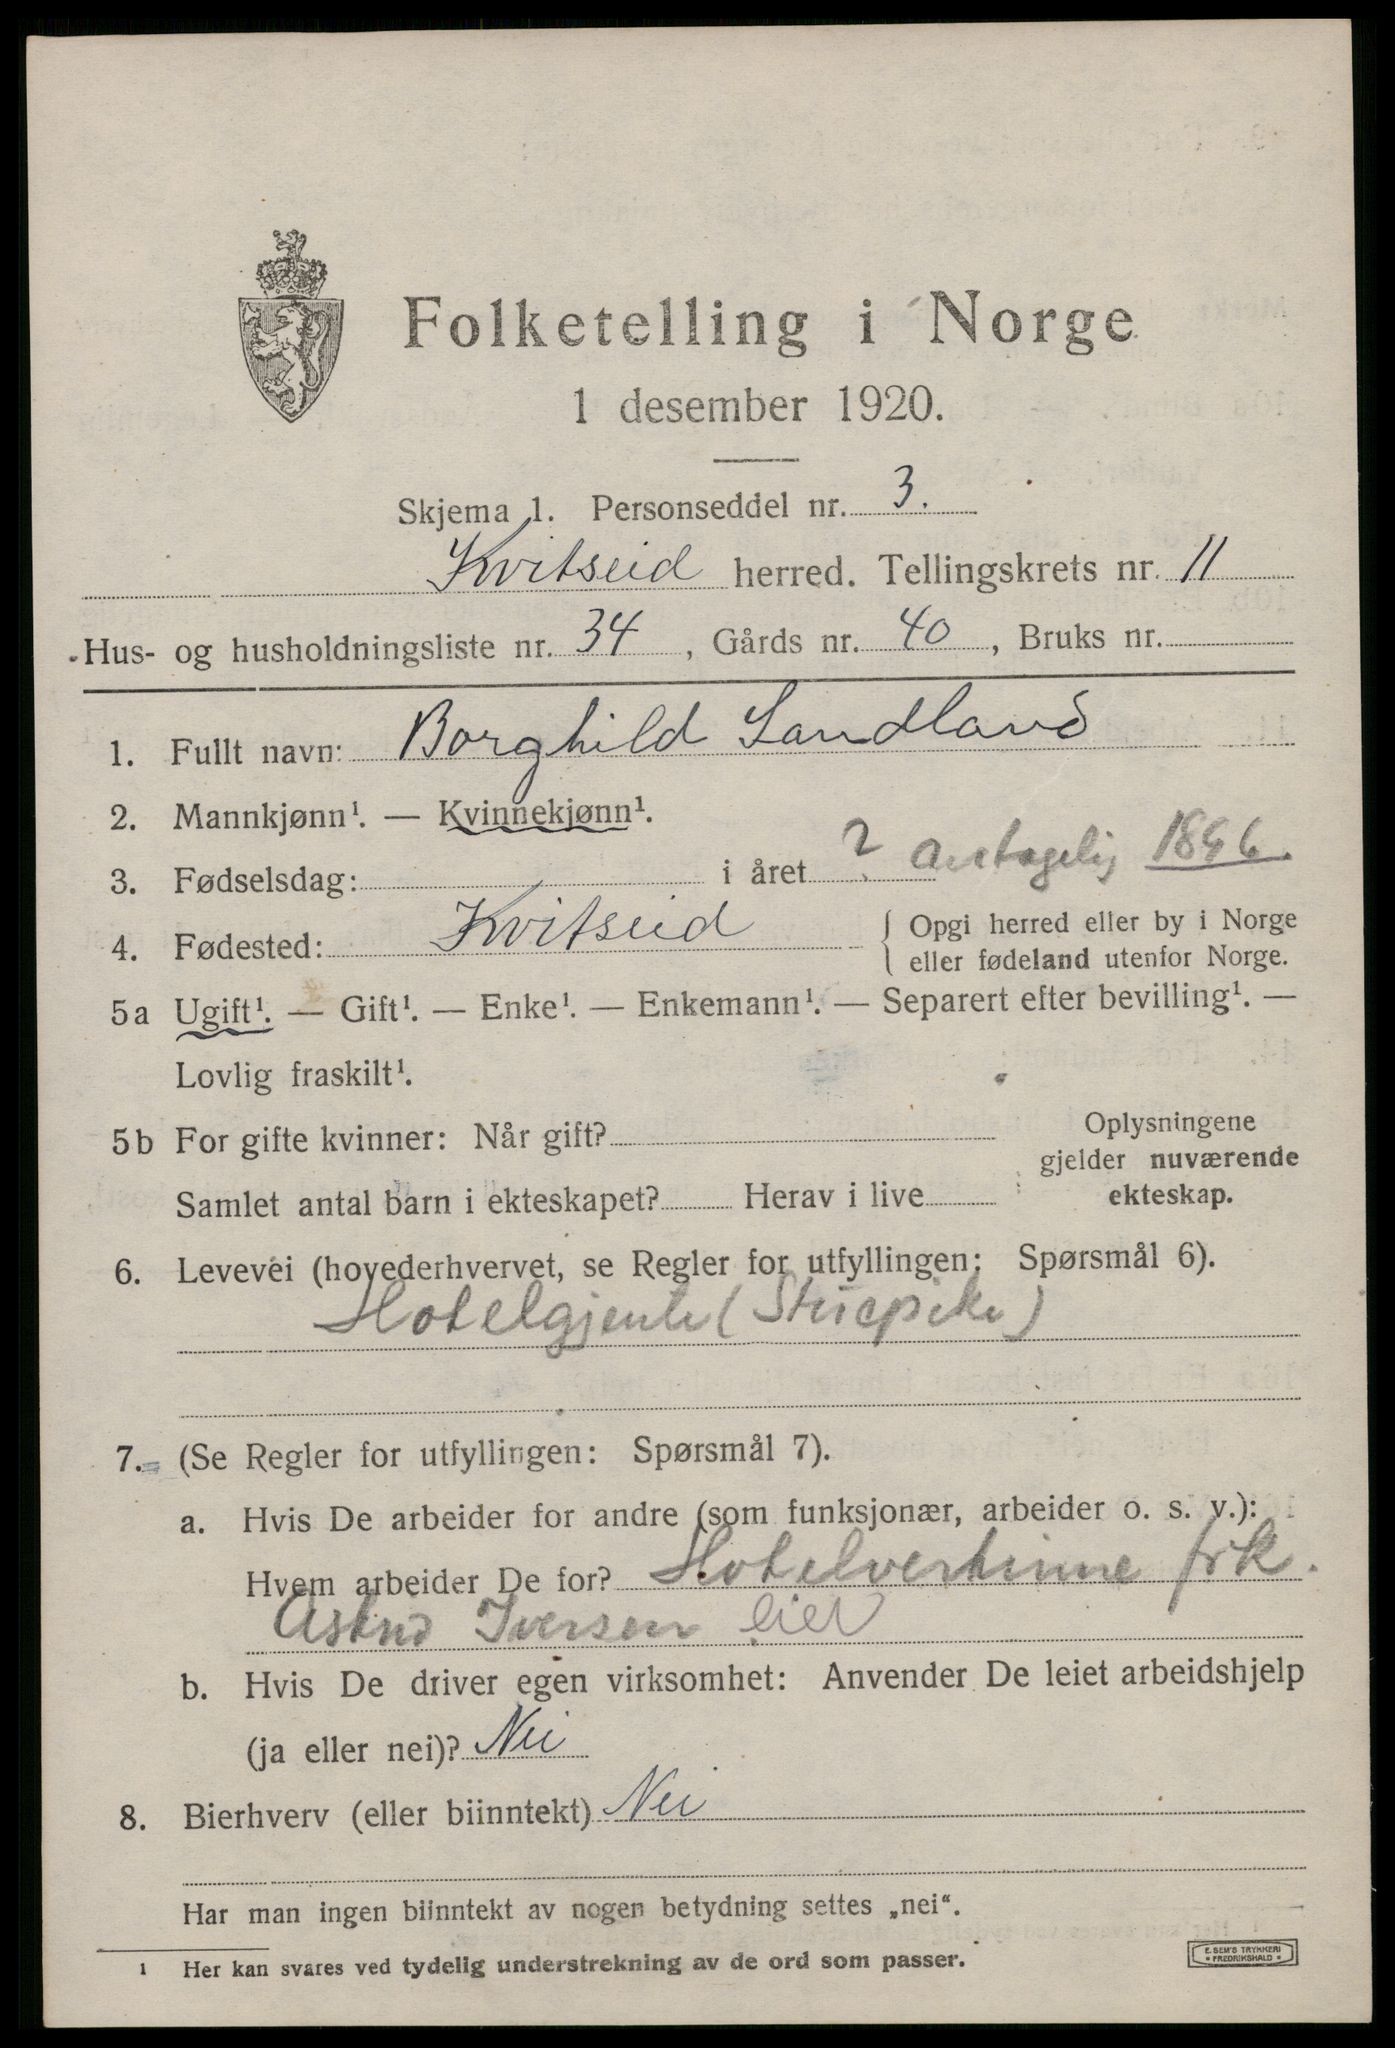 Folketelling i Norge
1 desember 1920.
Skjema 1. Personseddel nr. 3.
Kvitseid herred. Tellingskrets nr. 11
Hus- og husholdningsliste nr. 34, Gårds nr. 40, Bruks nr.
1. Fullt navn: Borghild Sandland
2. Mannkjønn¹. — Kvinnekjønn¹.
3. Fødselsdag: i året ? antagelig 1896.
4. Fødested: Kvitseid { Opgi herred eller by i Norge
eller fødeland utenfor Norge.
5a Ugift¹. — Gift¹. — Enke¹. — Enkemann¹. — Separert efter bevilling¹. —
Lovlig fraskilt¹.
5b For gifte kvinner: Når gift?
Samlet antal barn i ekteskapet? Herav i live
Oplysningene
gjelder nuværende
ekteskap.
6. Levevei (hovederhvervet, se Regler for utfyllingen: Spørsmål 6).
Hotelgjente (Stuepike)
7. (Se Regler for utfyllingen: Spørsmål 7).
a. Hvis De arbeider for andre (som funksjonær, arbeider o. s. v.):
Hvem arbeider De for? Hotelvertinne frk.
Astrid Iversen eier
b. Hvis De driver egen virksomhet: Anvender De leiet arbeidshjelp
(ja eller nei)? Nei
8. Bierhverv (eller biinntekt) Nei
Har man ingen biinntekt av nogen betydning settes „nei“.
¹ Her kan svares ved tydelig understrekning av de ord som passer.
E. SEM'S TRYKKERI
FREDRIKSHALD